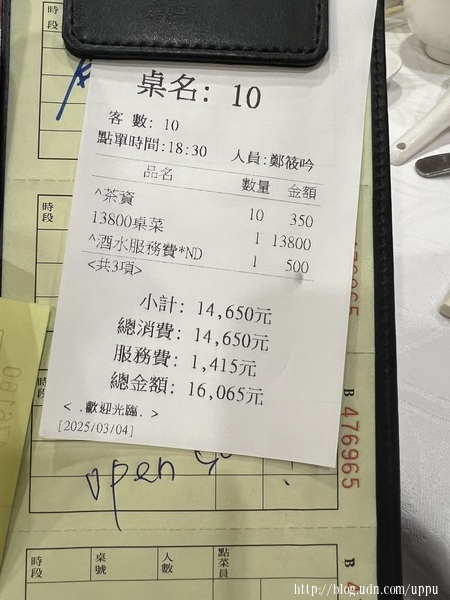 桌名: 10
客 數: 10
點單時間:18:30 人員:鄭筱吟
品名 數量 金額
^茶資 10 350
13800桌菜 1 13800
^酒水服務費*ND 1 500
<共3項>
小計: 14,650元
總消費: 14,650元
服務費: 1,415元
總金額: 16,065元
< .歡迎光臨. >
[2025/03/04]
時段
時段
時段
B 476965
open
時段 桌號 人數 點菜員
B
http://blog.udn.com/uppu